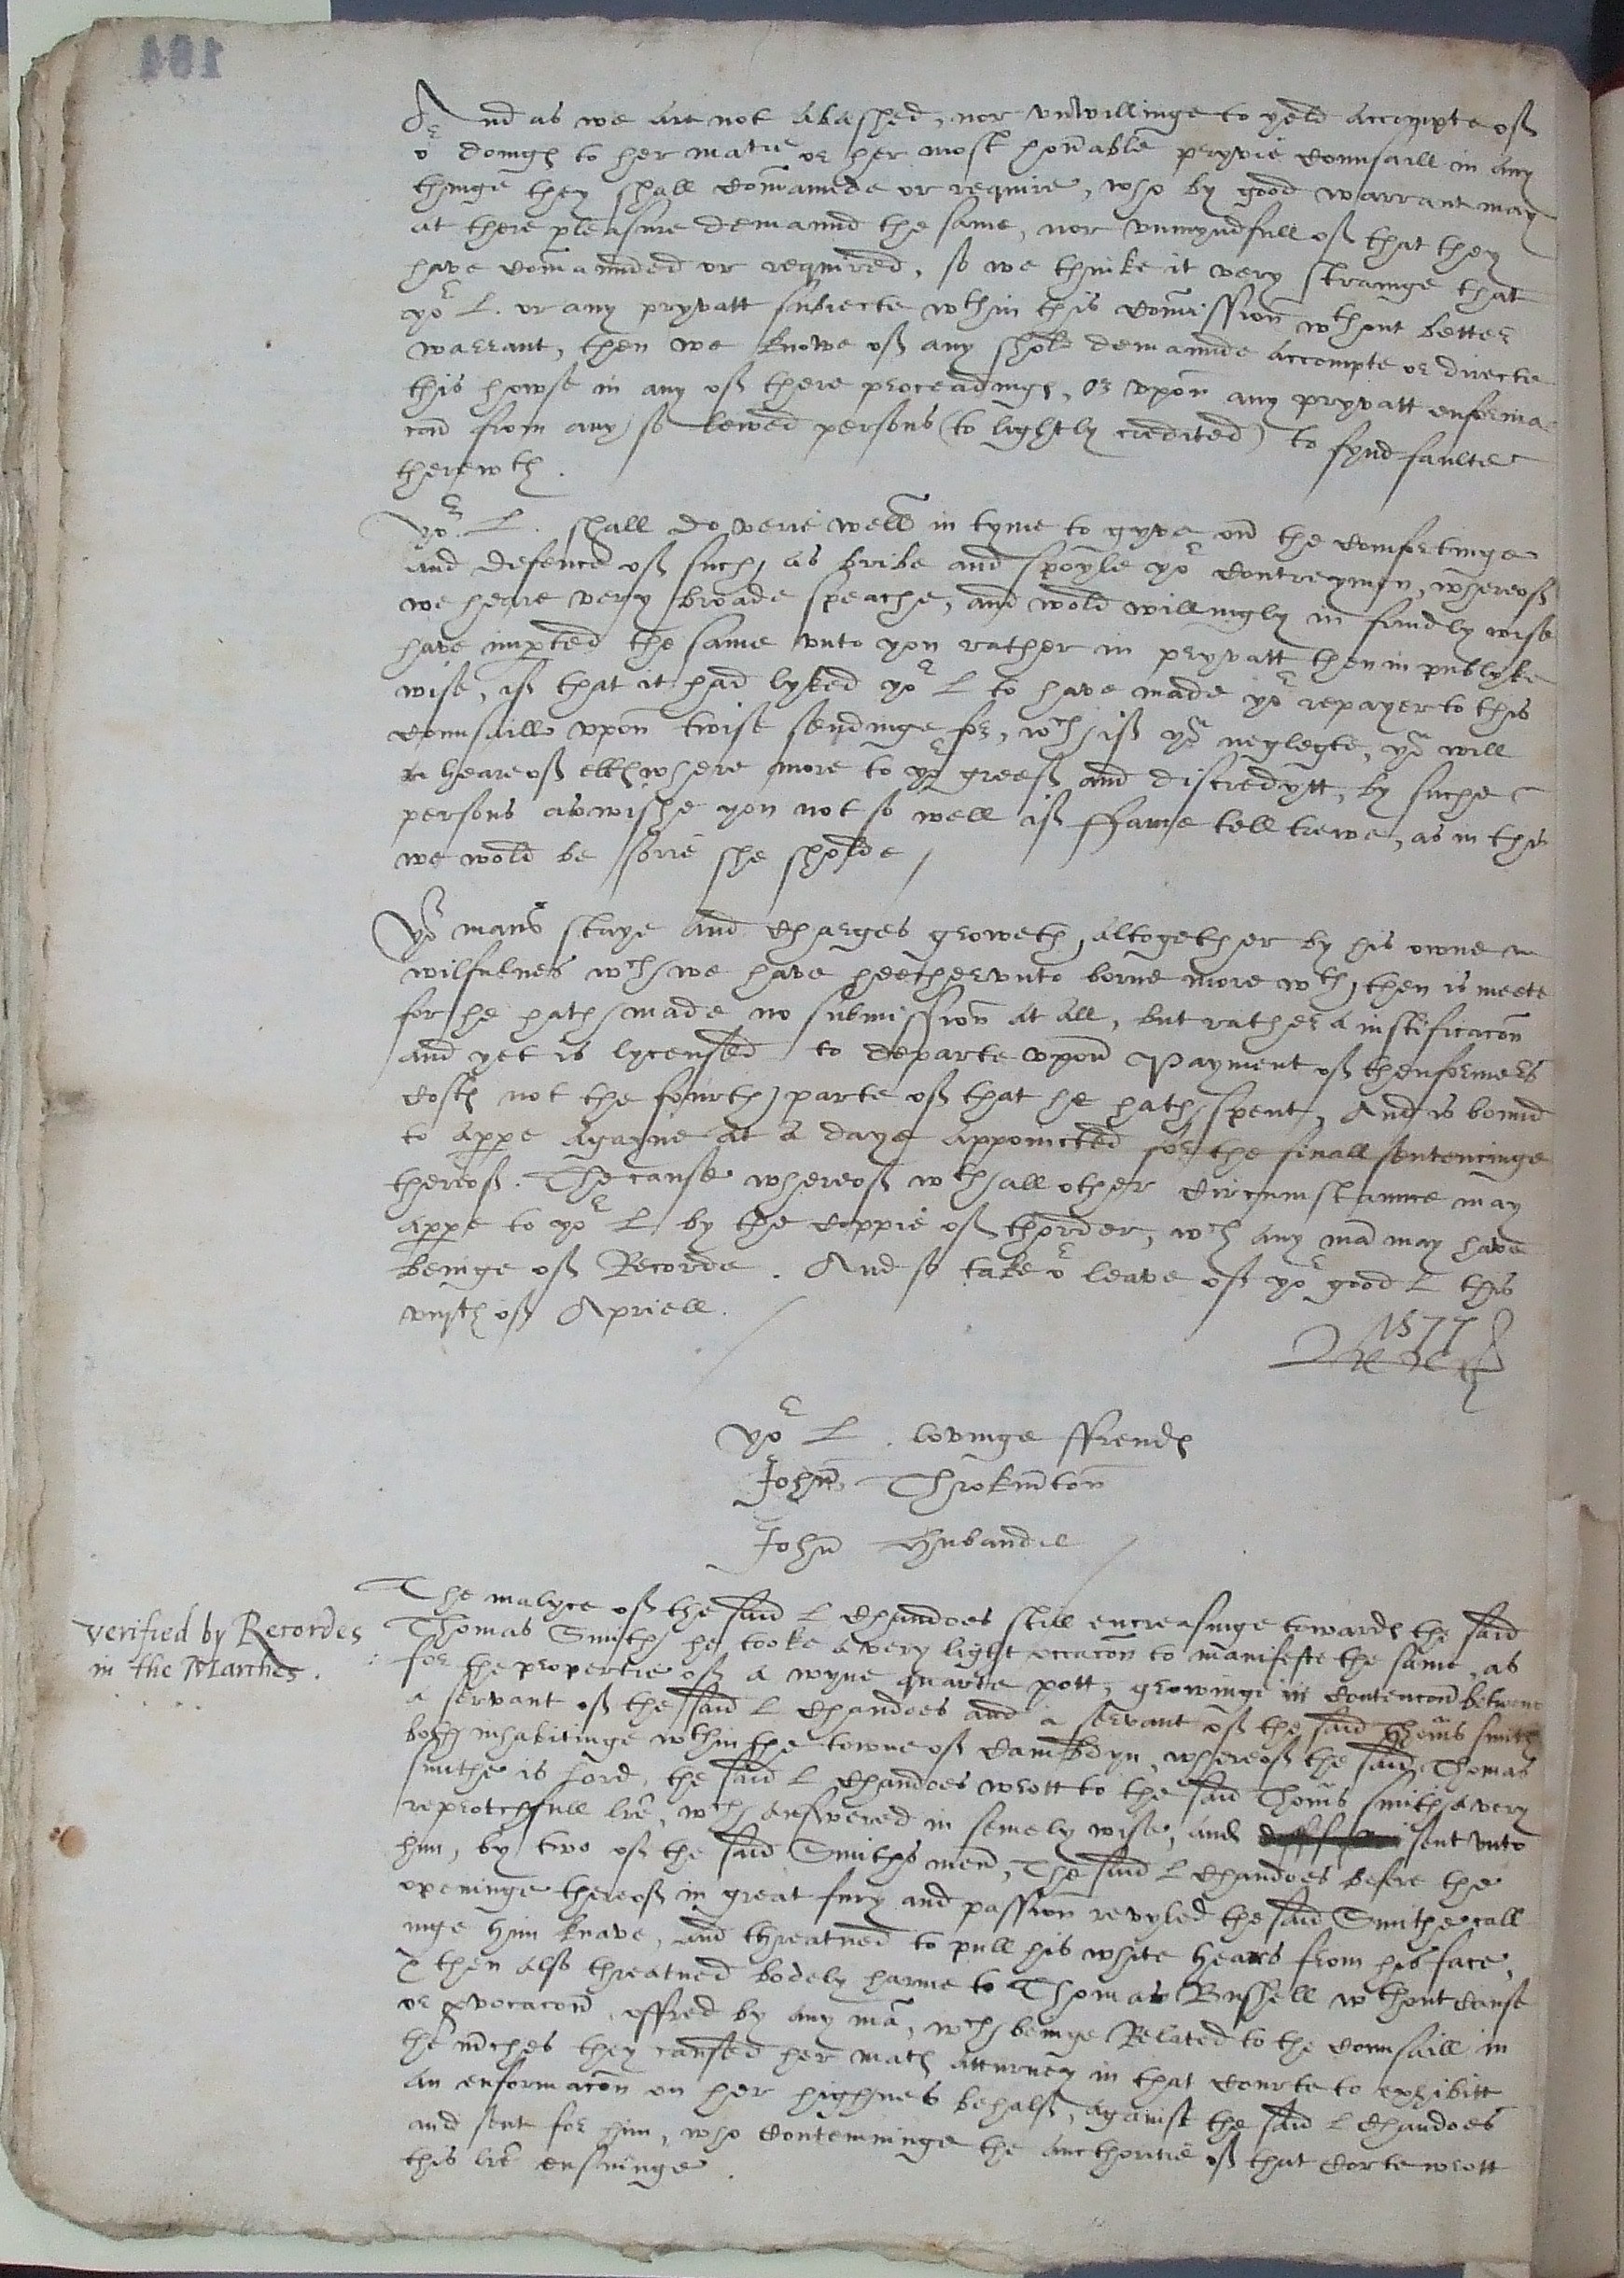 184
And as we are not abashed, nor unwillinge to yeld accompte off
or doings to her matie or her most honable pryvie Counsaill in any
thinge they shall Commaunde or require, who by good warrant may
at there pleasure demaund the same, nor unmyndfull off that they
have Commaunded or required, so we thinke it very straunge that
yor L. or any pryvatt subiecte wthin this Commission wthout better
warrant, then we knowe off any shold demaunde accompte or directe
this howse in any off there proceadings, or upon any pryvatt enforma
con from any so lewed persons (to lightly credited) to fynd faulte
therewth.
Yor L. shall do verie well in tyme to gyve on the Comfortinge
and defence off such, as bribe and spoyle yor Contreymen, whereoff
we heare very broade speache, and wold willingly in frindly wise
have imparted the same unto you rather in pryvatt then in publyke
wise, iff that it had lyked yor L to have made yor repayer to this
Counsaill upon twise sendinge for, wch iff yow neglegte, yow will
heare off ellswhere more to yor greeff and discredytt, by suche
persons as wishe you not so well iff ffame tell trewe, as in this
we wold be sorie she sholde /
Yor mans staye and Charges groweth, altogether by his owne
wilfulnes wch we have heethervnto borne more wth, then is meete
for he hath made no submission at all, but rather a iustificacon
and yet is lycensed to departe vpon Payment off thenformers
Costs not the fourth parte off that he hath spent, And is bound
to appe agayne at a daye appointed for the finall sentencinge
thereoff. The cause whereoff wth all other Circumstaunce may
appe to yor L by the Coppie off thorder, wch any man may have
beinge off Recorde. And so take or leave off yor good L this
viijth off Apriell. /
1577
Yor L. lovinge ffrends
John Throkmton
John Hubande /
verified by Recordes
in the Marches.
The malyce off the said L Chandoes still encreasinge towards the said
Thomas Smith, he tooke a very light occacon to manifeste the same, as
for the propertie off a wyne quarte pott, growinge in Contencon betwene
a servant off the said L Chandoes and a servant off the said Thoms smith
both inhabitinge wthin the towne off Cambdyn, whereoff the said Thomas
smithe is Lord, the said L Chandoes wrott to the said Thoms smith a very
reprotchfull lre, wch answered in semely wise, and sent unto
him, by two off the said Smiths men, The said L Chandoes before the
openinge thereoff in great fury and passion revyled the said Smithe call
inge him knave, and threatned to pull his white heares from his face,
& then also threatned bodely harme to Thomas Bushell wthout Cause
or pvocacon, offred by any man, wch beinge Related to the Counsaill in
the mches they caused her mats atturney in that Courte to exhibitt
an enformacon on her highnes behalff, against the said L Chandoes
and sent for him, who Contemninge the aucthoritie off that Corte wrott
this lre ensuinge.